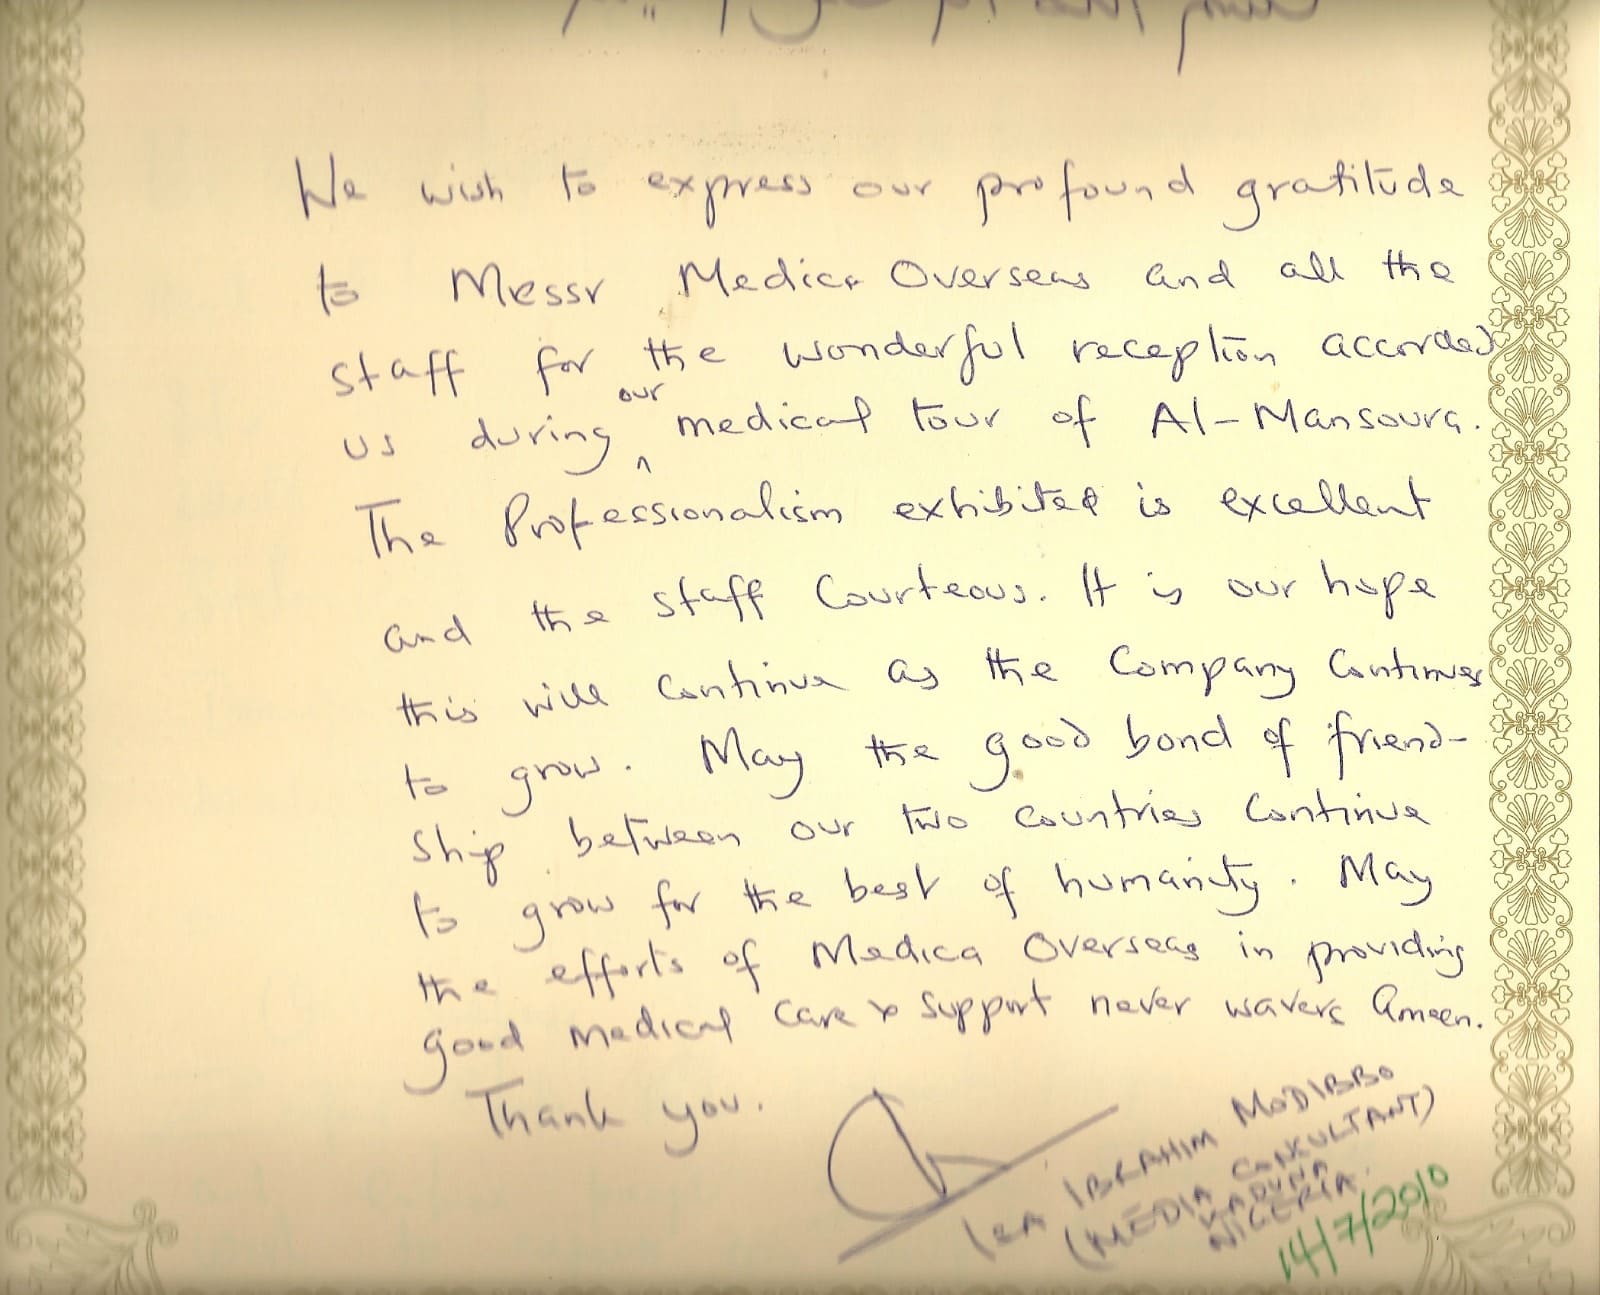 We wish to express our profound gratitude
to Messr Medica Overseas and all the
staff for the wonderful reception accorded
us during our medical tour of Al-Mansoura.
The Professionalism exhibited is excellent
and the staff Courteous. It is our hope
this will Continue as the Company Continues
to grow. May the good bond of friend-
ship between our two Countries Continue
to grow for the best of humanity. May
the efforts of Medica Overseas in providing
good medical Care & Support never wavers Ameen.
Thank you.
ISA IBRAHIM MODIBBO
(MEDIA CONSULTANT)
KADUNA
NIGERIA.
14/7/2010